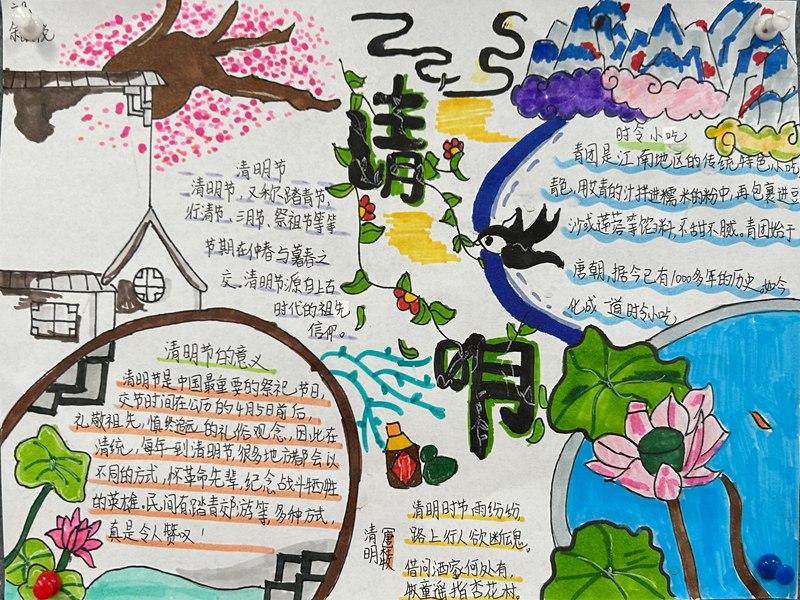 清明
清明节
清明节，又称踏青节，
行清节、三月节、祭祖节等等
节期在仲春与暮春之
交。清明节源自上古
时代的祖先
信仰。
时令小吃
青团是江南地区的传统特色小吃
青色，用艾青的汁拌进糯米的粉中，再包裹进豆
沙或莲蓉等馅料，不甜不腻。青团始于
唐朝，据今已有1000多年的历史，如今
化成一道时令小吃
清明节的意义
清明节是中国最重要的祭祀节日，
交节时间在公历的4月5日前后，
礼敬祖先，慎终追远的礼俗观念，因此在
清统，每年一到清明节很多地方都会以
不同的方式，怀革命先辈，纪念战斗牺牲
的英雄。民间有踏青郊游等多种方式，
真是令人赞叹！
清明
唐 杜牧
清明时节雨纷纷
路上行人欲断魂。
借问酒家何处有，
牧童遥指杏花村。